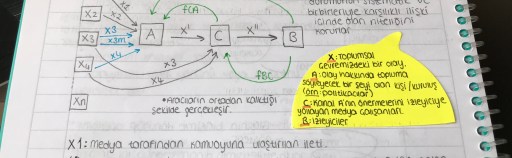 durumunun sistematik ve
birbirleriyle karşılıklı ilişki
içinde olan niteliğini
korunur
fCA
X2
x2
X3
x3
x3m
X4
x4
x3
x4
A
X'
C
X''
B
fBC
Xn
•Aracıların ortadan kalktığı
şekilde gerçekleşir.
X: Toplumsal
çevremizdeki bir olay.
A: olay hakkında topluma
söyleyecek bir şeyi olan kişi/kuruluş
(örn: politikacılar)
C: Kanal A'nın önermelerini izleyiciye
yollayan medya çalışanları.
B: İzleyiciler
X1: medya tarafından kamuoyuna ulaştırılan ileti.